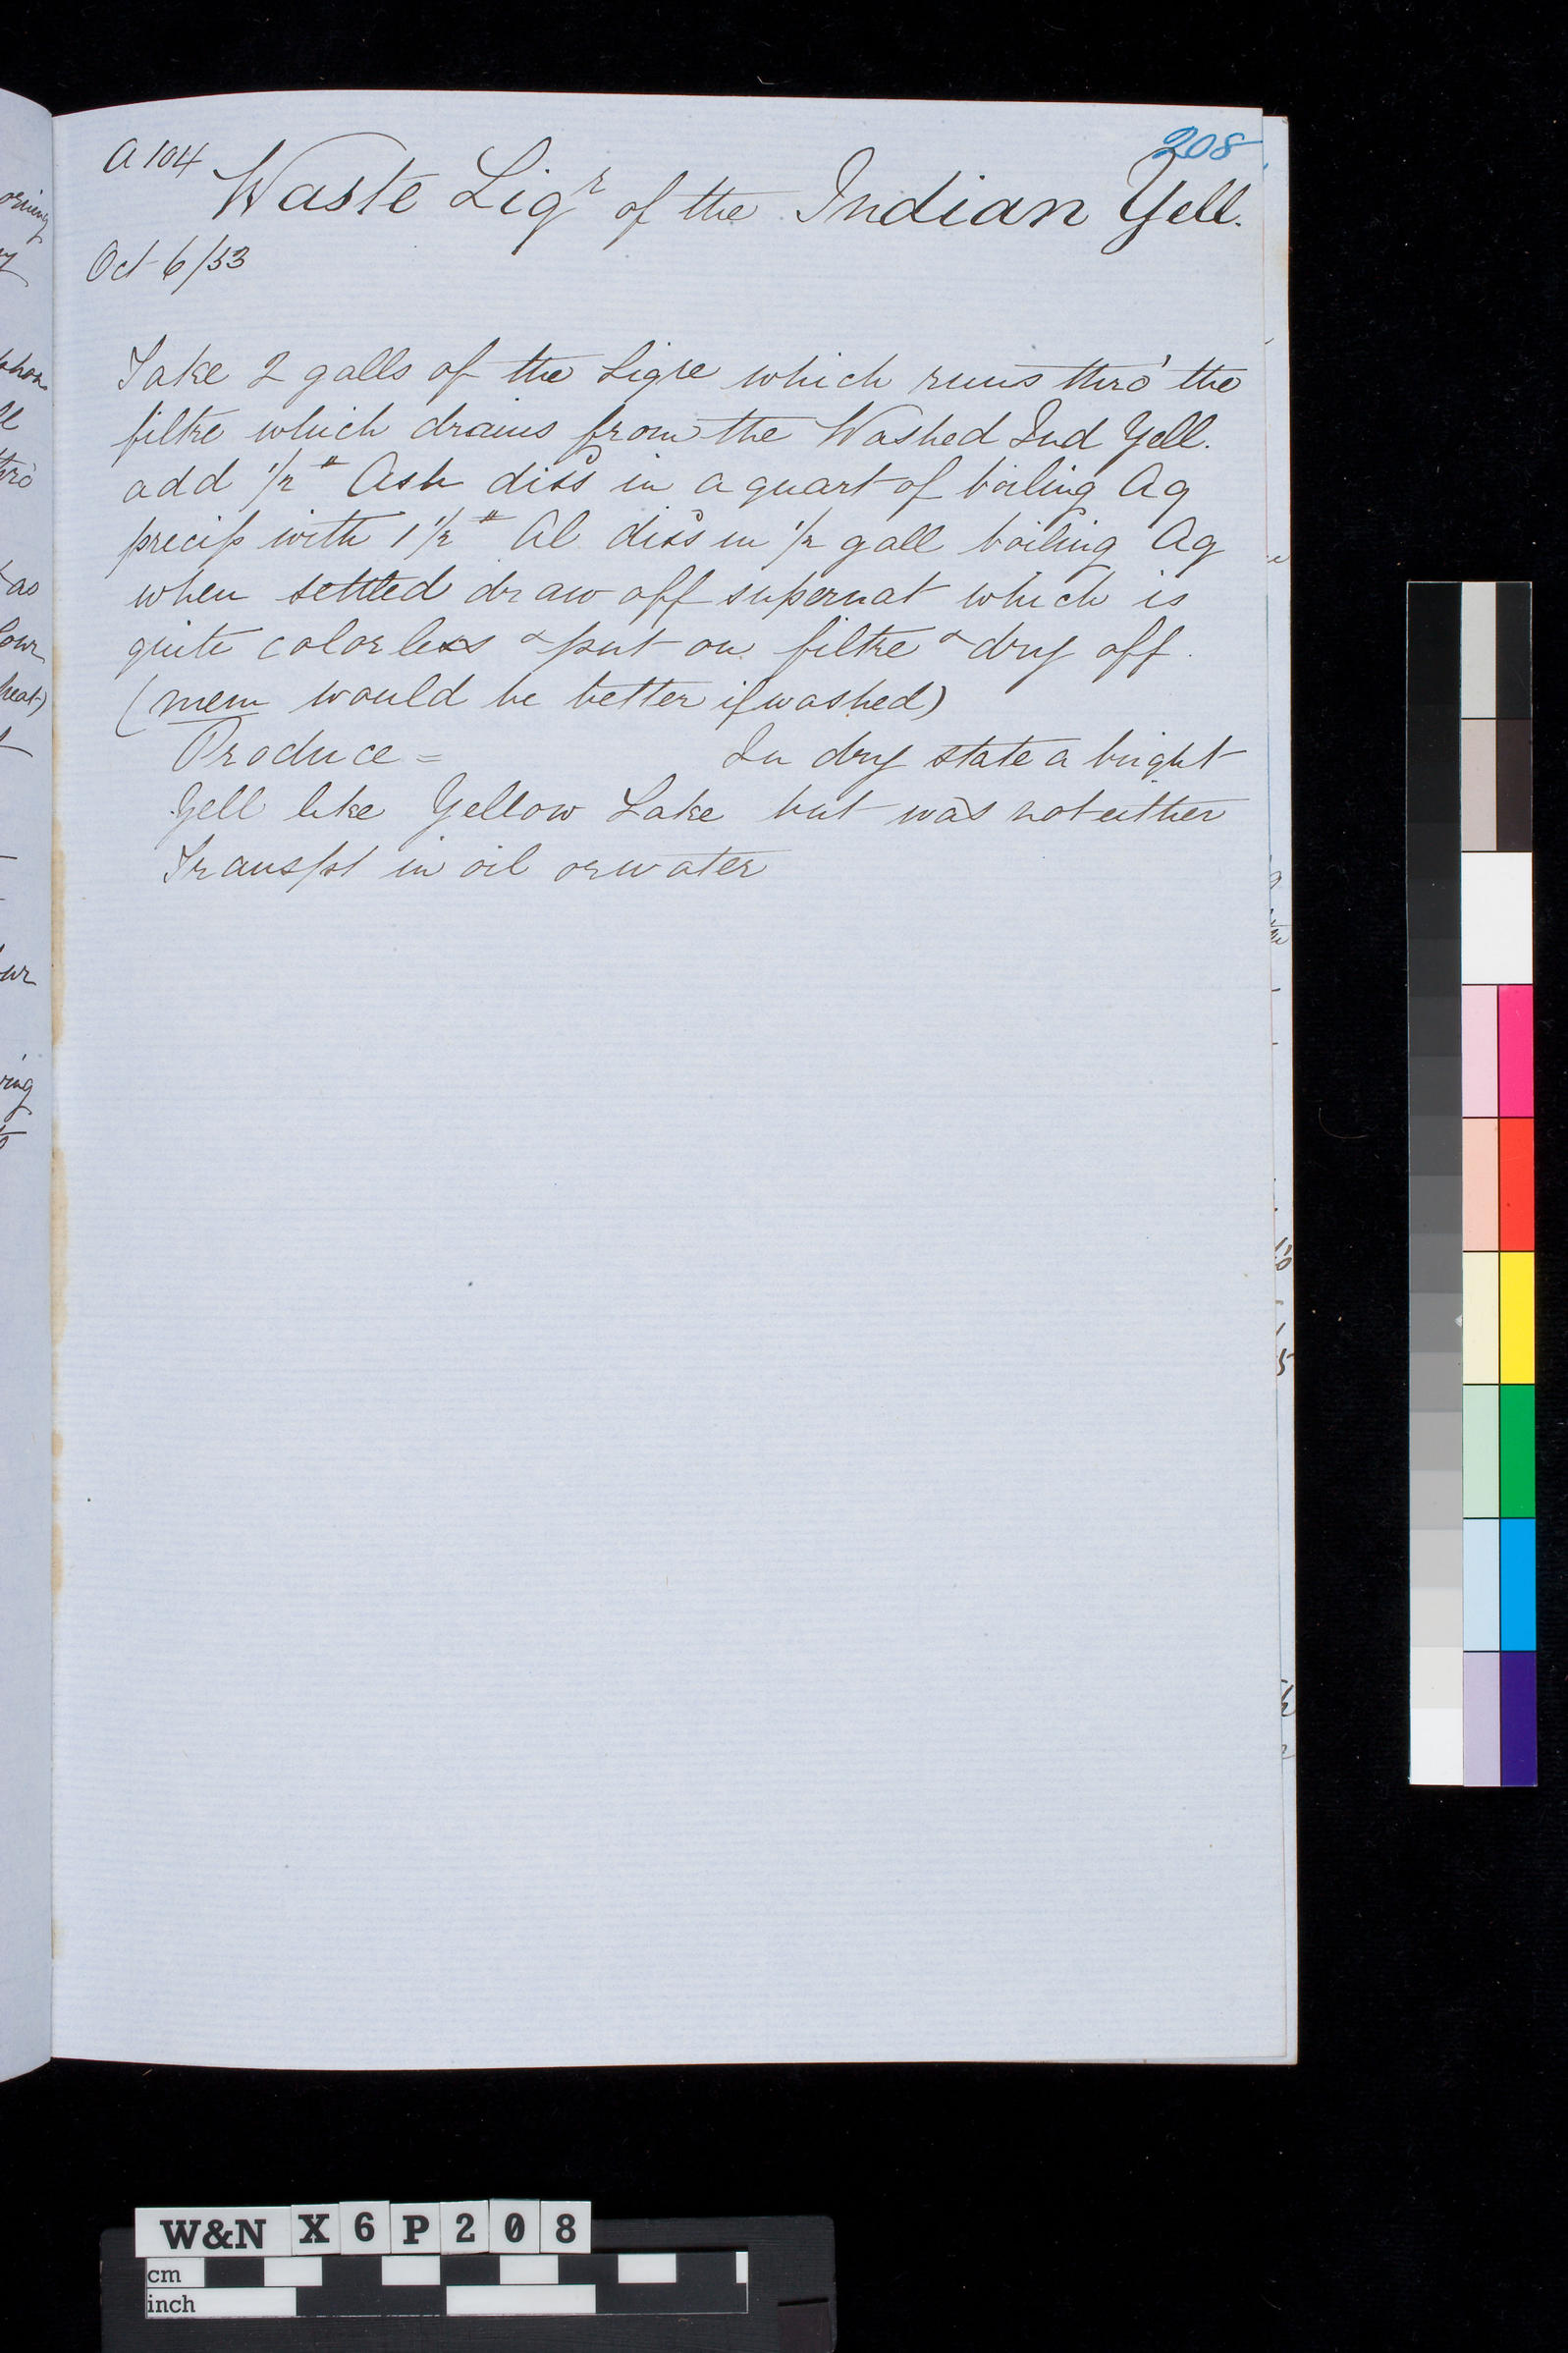 208
A 104
Waste Liqr of the Indian Yell.
Oct 6/53
Take 2 galls of the Liqre which runs thro' the
filtre which drains from the Washed Ind Yell.
add 1/2 # Ash diss in a quart of boiling Aq
precip with 1 1/2 # Al diss in 1/2 gall boiling Aq
when settled draw off supernat which is
quite colorless & put on filtre & dry off.
(mem would be better if washed)
Produce = In dry state a bright
Yell like Yellow Lake but was not either
Transpt in oil or water
W&N X6P208
cm
inch